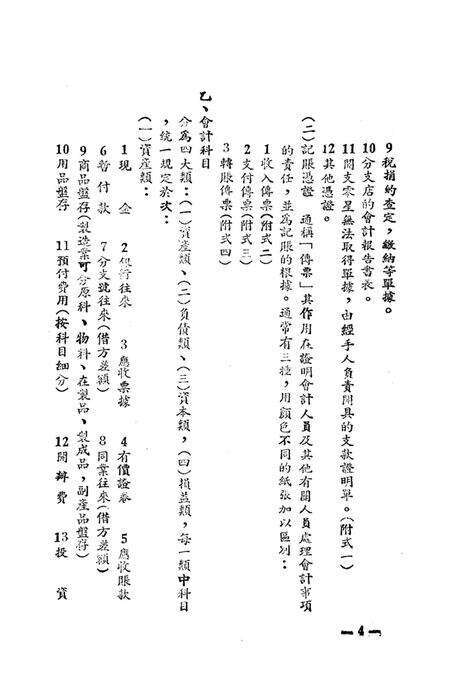 9 稅捐的查定，繳納等單據。
10 分支店的會計報告書表。
11 開支零星無法取得單據，由經手人負責開具的支款證明單。（附式一）
12 其他憑證。
（二）記賬憑證　通稱「傳票」其作用在證明會計人員及其他有關人員處理會計事項
的責任，並為記賬的根據。通常有三種，用顏色不同的紙張加以區別：
1 收入傳票（附式二）
2 支付傳票（附式三）
3 轉賬傳票（附式四）
乙、會計科目
分為四大類：（一）資產類、（二）負債類、（三）資本類，（四）損益類，每一類中科目
，統一規定於次：
（一）資產類：
1 現　金　2 銀行往來　3 應收票據　4 有價證券　5 應收賬款
6 暫付款　7 分支號往來（借方差額）　8 同業往來（借方差額）
9 商品盤存（製造業可分原料、物料、在製品、製成品，副產品盤存）
10 用品盤存　11 預付費用（按科目細分）　12 開辦費　13 投　資
—4—